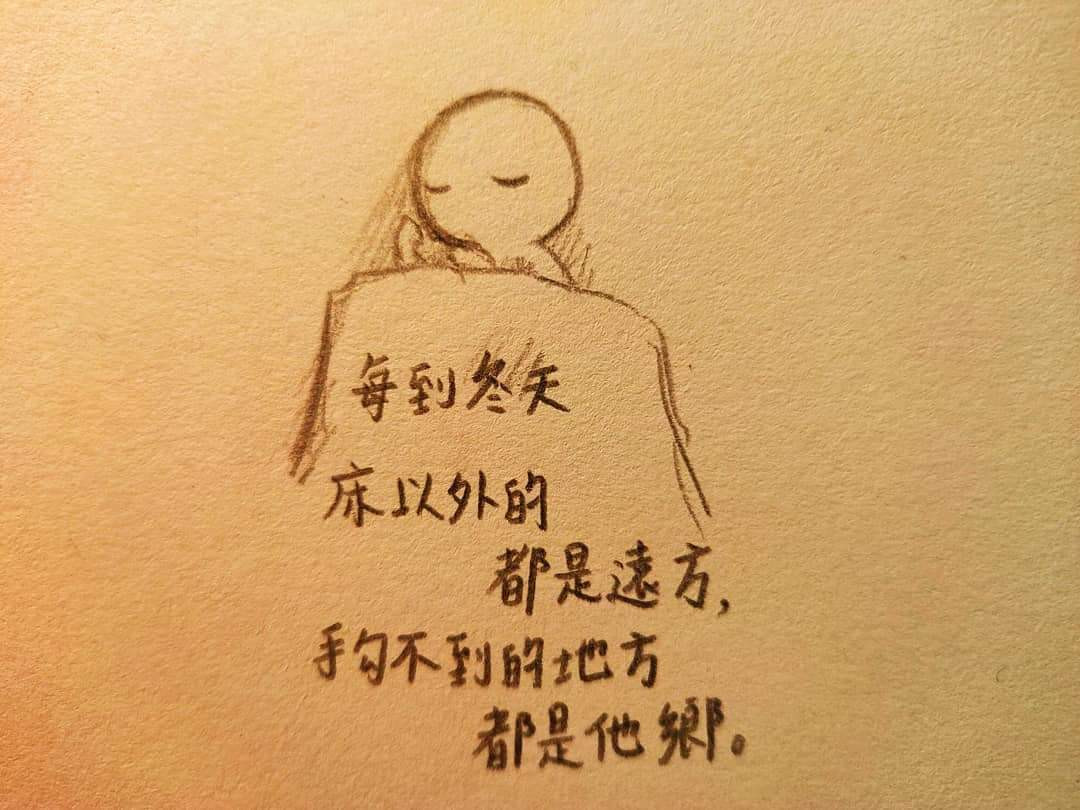 每到冬天
床以外的
都是遠方,
手勾不到的地方
都是他鄉。